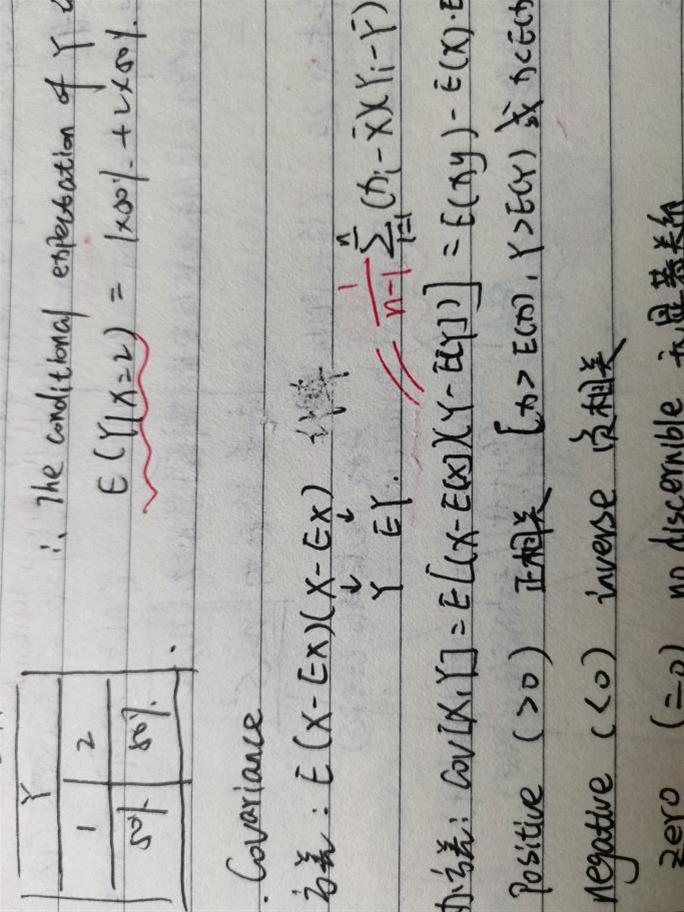 ∴ The conditional expectation of Y
E(Y|X=2) = 1×50%+2×50%.
Y
1 2
50% 50%
· Covariance
方差: E(X-EX)(X-EX)
↓ ↓
Y EY.
1/(n-1) Σ_{i=1}^{n} (Xi-X̄)(Yi-Ȳ)
协方差: Cov[X,Y]=E[(X-E[X])(Y-E[Y])] = E(XY)-E(X)·E
Positive (>0) 正相关 [X>E(X), Y>E(Y) 或 X<E(X)
negative (<0) inverse 负相关
zero (=0) no discernible 无显著关系